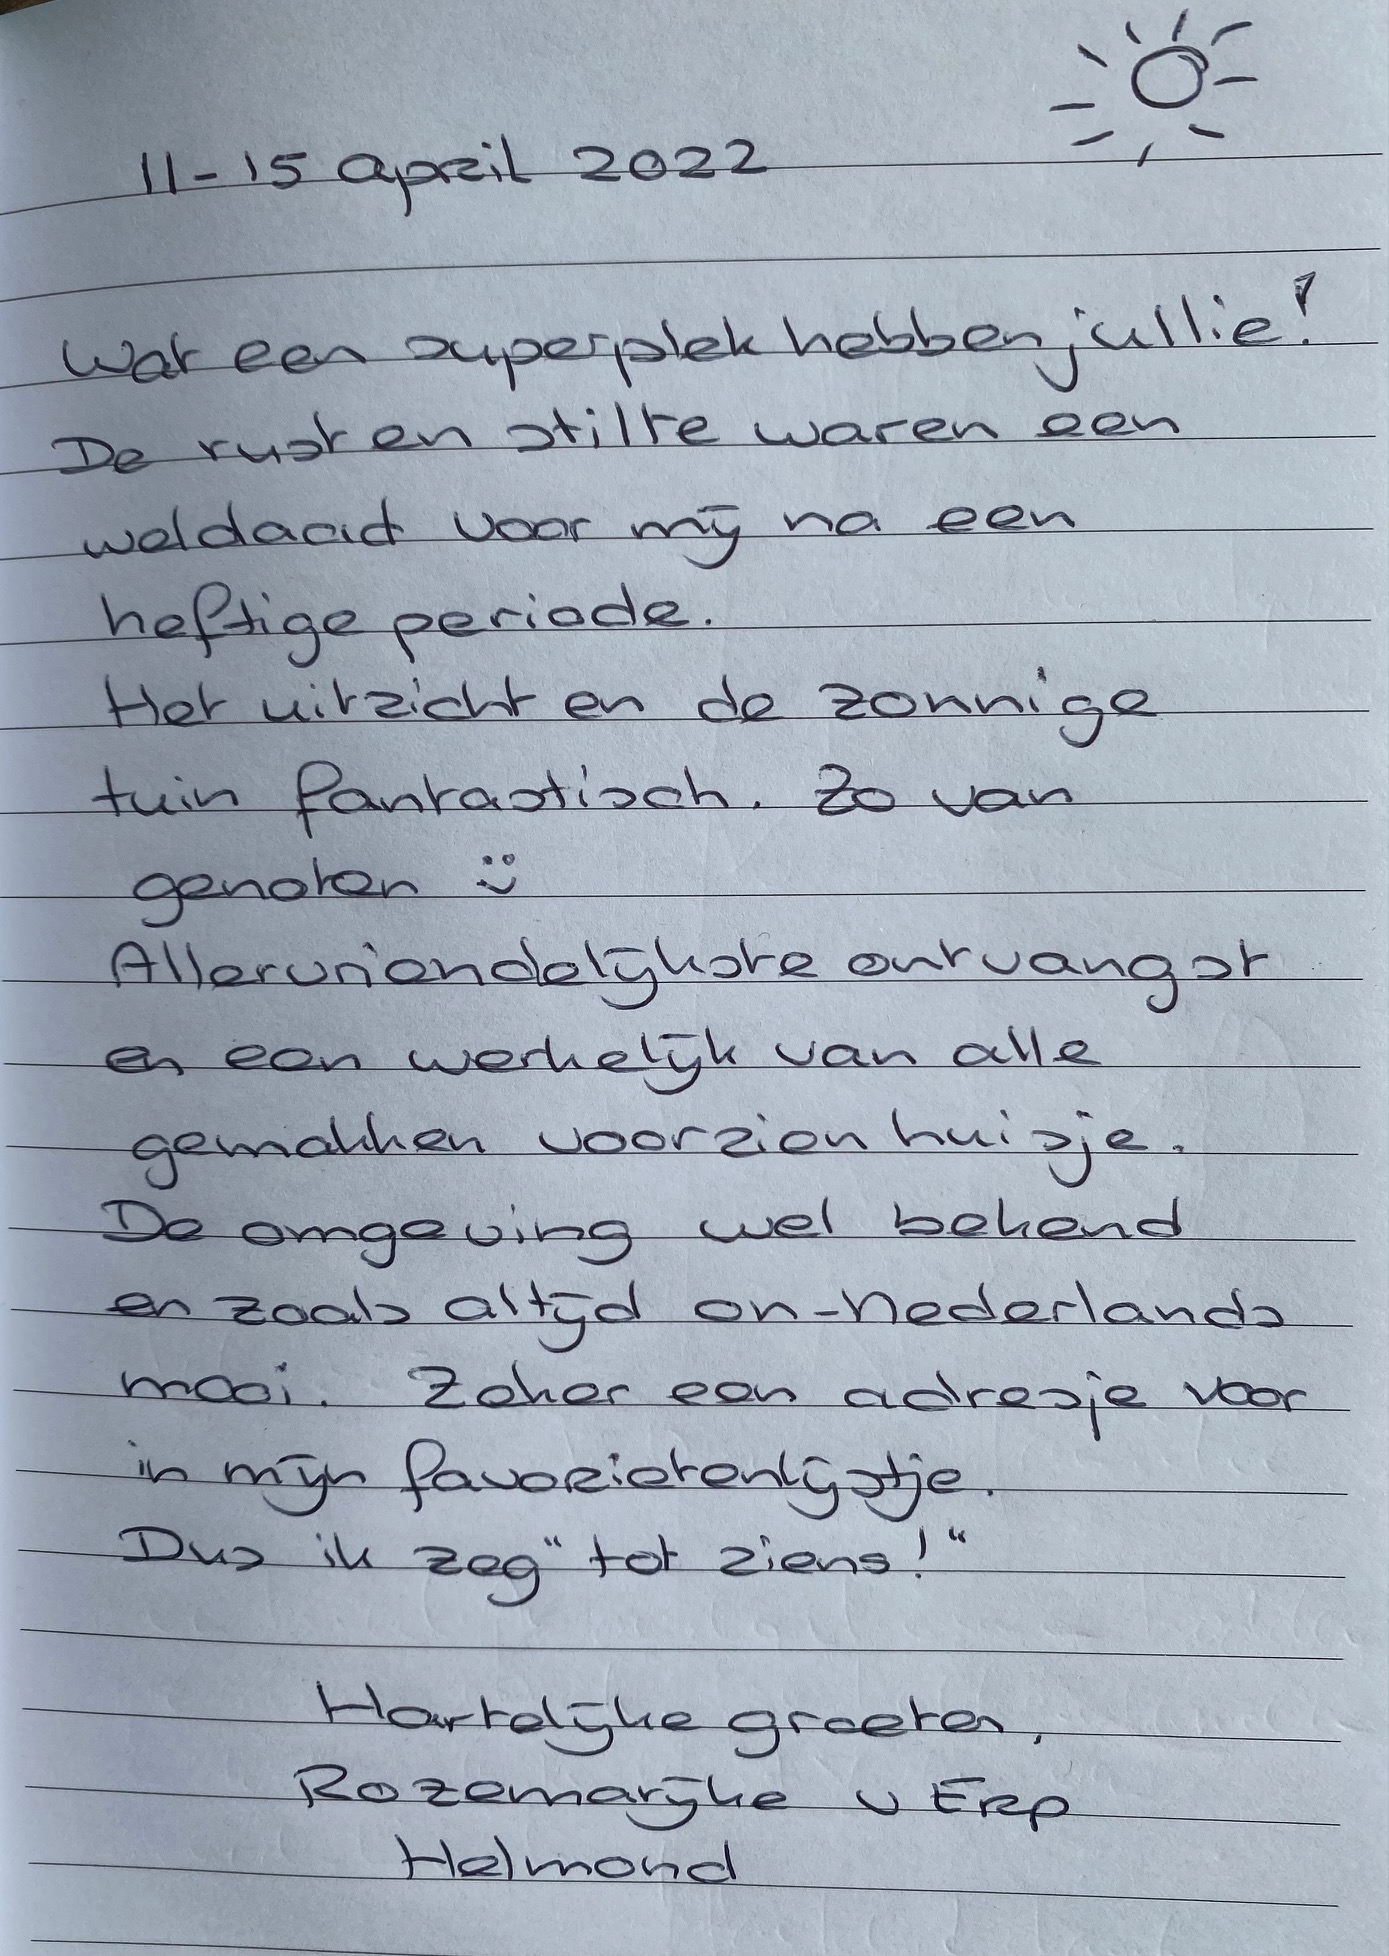 11-15 april 2022
Wat een superplek hebben jullie!
De rust en stilte waren een
weldaad voor mij na een
heftige periode.
Het uitzicht en de zonnige
tuin fantastisch. Zo van
genoten
Allervriendelijkste ontvangst
en een werkelijk van alle
gemakken voorzien huisje.
De omgeving wel bekend
en zoals altijd on-Nederlands
mooi. Zeker een adresje voor
in mijn favorietenlijstje.
Dus ik zeg "tot ziens!"
Hartelijke groeten,
Rozemarijke v Erp
Helmond